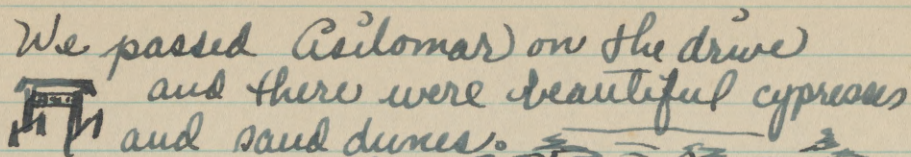 We passed Asilomar on the drive
and there were beautiful cypresses
and sand dunes.